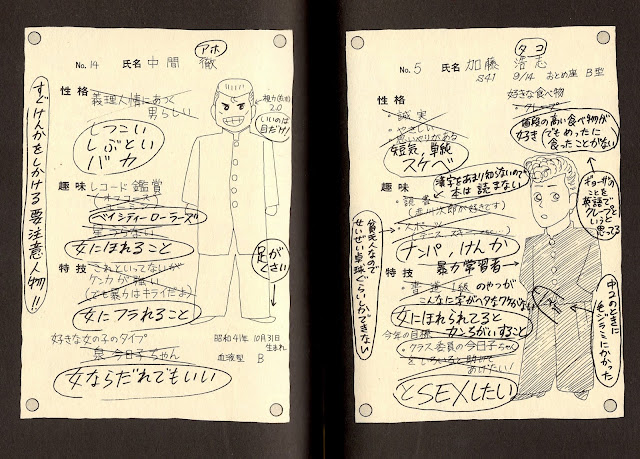 アホ
No. 14 氏名 中間 徹
性格
義理人情にあつく
男らしい
しつこい
しぶとい
バカ
視力(左右)
2.0
いいのは
目だけ!
すぐけんかをしかける要注意人物!!
趣味 レコード鑑賞
ベイシティーローラーズ
女にほれること
特技 これといってないが
ケンカが強い
(でも暴力はキライだよ)
女にフラれること
足が
くさい
好きな女の子のタイプ
今日子ちゃん
女ならだれでもいい
昭和41年 10月31日
生まれ
血液型 B
タコ
No. 5 氏名 加藤 浩志
S41 9/14 おとめ座 B型
性格
・誠実
・やさしい
・思いやりがある
短気、単純
スケベ
好きな食べ物
・クレープ
値段の高い食べ物が
好き でもめったに
食ったことがない
ギョーザの
ことを
英語で
クレープと
いうと
思ってる
趣味
漢字をあまり知らないので
本は読まない
・読書
(赤川次郎が好きです)
ナンパ、けんか
貧乏人なので
せいぜい卓球ぐらいしかできない
特技
暴力学習者
・書道1級
のやつが
こんなに字がヘタなワケがない
女にほれられてると
カンちがいすること
今年の目標
・クラス委員の今日子ちゃん
あげたい!
とSEXしたい
中2のときに
毛ジラミにかかった